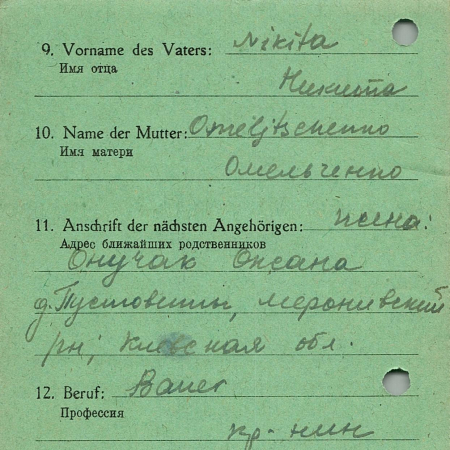 9. Vorname des Vaters: Nikita
Имя отца
Никита
10. Name der Mutter: Omeljtschenko
Имя матери
Омельченко
11. Anschrift der nächsten Angehörigen: жена:
Адрес ближайших родственников
Онучак Оксана
д. Пустовиты, меронивский
рн, Киевская обл.
12. Beruf: Bauer
Профессия
кр-нин